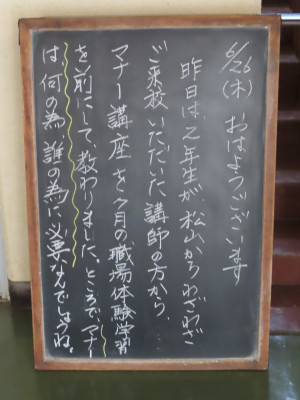 6/26(木) おはようございます
昨日は、2年生が、松山からわざわざ
ご来校いただいた、講師の方から、
マナー講座を今月の職場体験学習
を前にして、教わりました。ところで、マナー
は、何の為、誰の為に、必要なんでしょうね。